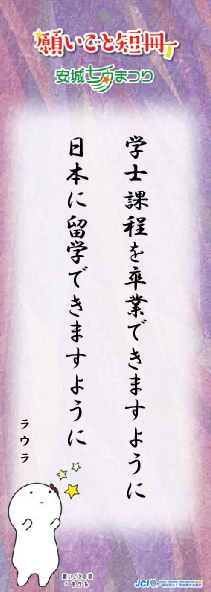 願いごと短冊
安城七夕まつり
学士課程を卒業できますように
日本に留学できますように
ラウラ
願いごと短冊
JCI